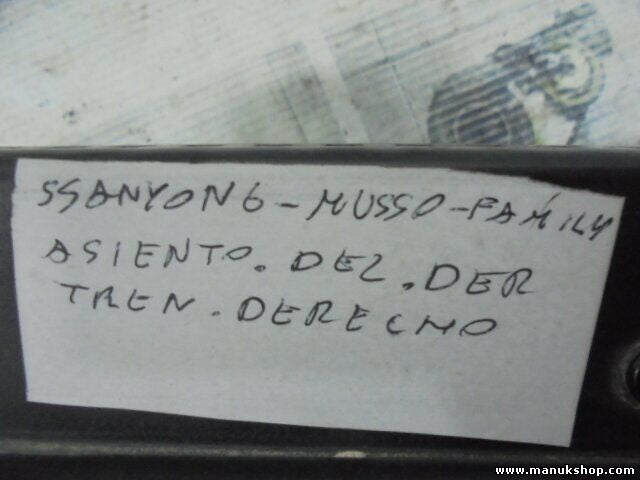 SSANYONG-MUSSO-FAMILY
ASIENTO.DEL.DER
TREN.DERECHO
www.manukshop.com